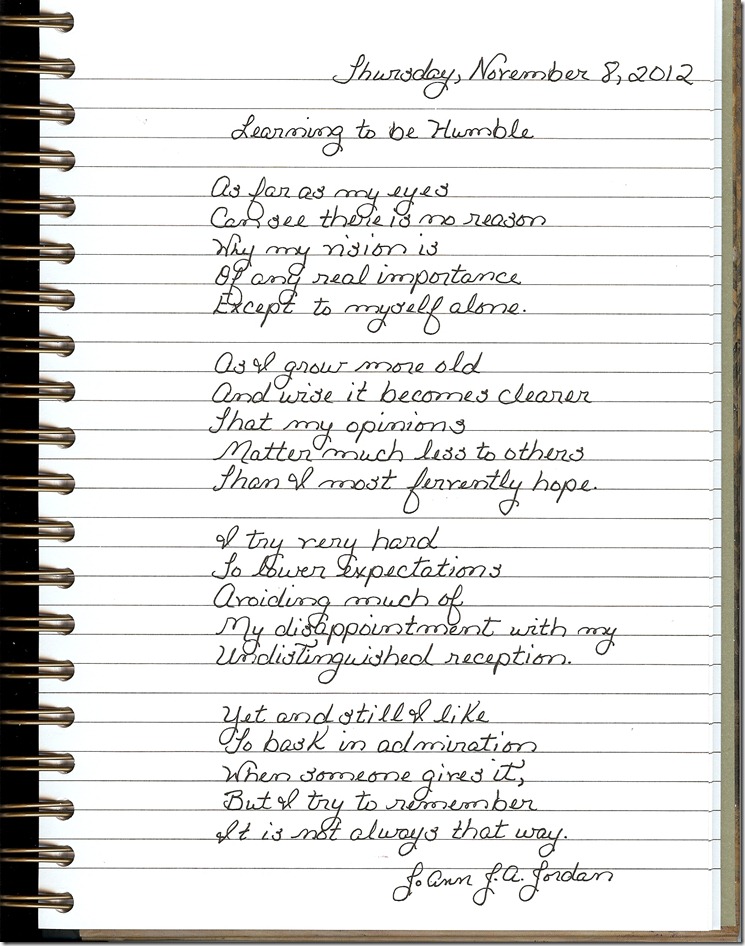 Thursday, November 8, 2012
Learning to be Humble
As far as my eyes
Can see there is no reason
Why my vision is
Of any real importance
Except to myself alone.
As I grow more old
And wise it becomes clearer
That my opinions
Matter much less to others
Than I most fervently hope.
I try very hard
To lower expectations
Avoiding much of
My disappointment with my
Undistinguished reception.
Yet and still I like
To bask in admiration
When someone gives it,
But I try to remember
It is not always that way.
JoAnn J.A. Jordan